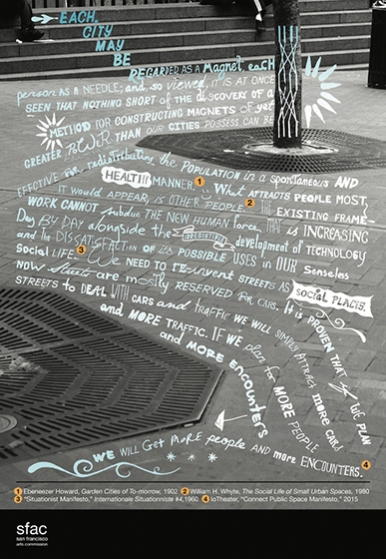 EACH
CITY
MAY
BE
REGARDED AS A magnet, eacH
person AS A NEEDLE; and, so viewed, IT IS AT ONCE
SEEN THAT NOTHING SHORT of THE DISCOVERY OF A
METHOD FOR CONSTRUCTING MAGNETS OF yet
GREATER POWER THAN OUR CITIES POSSESS CAN BE
EFFECTIVE for redistributing the POPULATION in a spontaneous AND
HEALTHY MANNER. 1 What ATTRACTS PEOPLE MOST,
IT WOULD APPEAR, IS OTHER PEOPLE. 2 THE EXISTING FRAME-
WORK CANNOT subdue THE NEW HUMAN force THAT IS INCREASING
Day BY DAY alongside the irresistible development of TECHNOLOGY
and The DISSATISFACTION OF ITS POSSIBLE USES in OUR Senseless
Social LIFE. 3 We NEED TO reinvent STREETS AS social PLACES.
NOW Streets are mostly RESERVED for CARS. It is PROVEN THAT if WE PLAN
STREETS to DEAL WITH CARS and traffic WE WILL SIMPLY ATTRACT more CARS
and MORE TRAFFIC. IF WE plan for MORE PEOPLE
and MORE encounters
WE WILL Get MoRE people AND more ENCOUNTERS. 4
1 Ebeneezer Howard, Garden Cities of To-morrow, 1902 2 William H. Whyte, The Social Life of Small Urban Spaces, 1980
3 "Situationist Manifesto," Internationale Situationniste #4, 1960 4 ioTheater, "Connect Public Space Manifesto," 2015
sfac
san francisco
arts commission